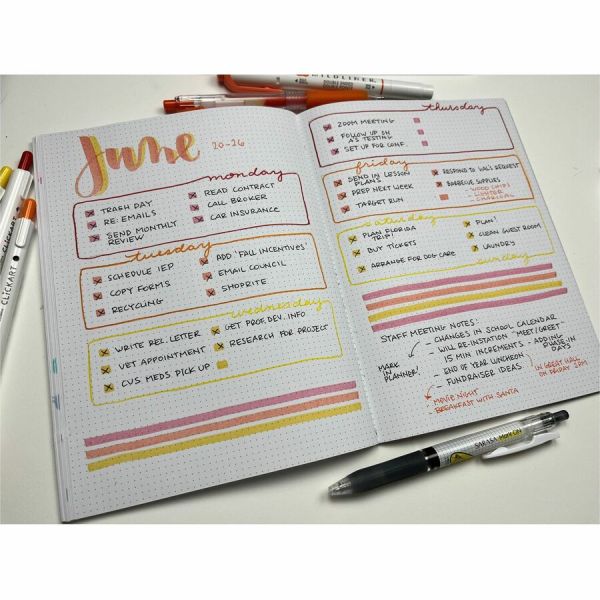 June 20-26
monday
TRASH DAY
RE: EMAILS
SEND MONTHLY
REVIEW
READ CONTRACT
CALL BROKER
CAR INSURANCE
tuesday
SCHEDULE IEP
COPY FORMS
RECYCLING
ADD 'FALL INCENTIVES'
EMAIL COUNCIL
SHOPRITE
wednesday
WRITE REL. LETTER
VET APPOINTMENT
CVS MEDS PICK UP
GET PROF. DEV. INFO
RESEARCH FOR PROJECT
thursday
ZOOM MEETING
FOLLOW UP ON
AS TESTING
SET UP FOR CONF.
friday
SEND IN LESSON
PLANS
PREP NEXT WEEK
TARGET RUN
RESPOND TO HAL'S REQUEST
BARBEQUE SUPPLIES
- WOOD CHIPS
- LIGHTER
- CHARCOAL
saturday
PLAN FLORIDA
TRIP!
BUY TICKETS
ARRANGE FOR DOG CARE
PLAN!
CLEAN GUEST ROOM
LAUNDRY
sunday
STAFF MEETING NOTES:
- CHANGES IN SCHOOL CALENDAR
- WILL RE-INSTATION "MEET/GREET"
15 MIN INCREMENTS - ADDING
PHASE-IN
DAYS
MARK
IN
PLANNER!
- END OF YEAR LUNCHEON
- FUNDRAISER IDEAS
IN GREAT HALL
ON FRIDAY 2PM
- MOVIE NIGHT
- BREAKFAST WITH SANTA
MILDLINER
CLICKART
CLICKART
SARASA MARK ON